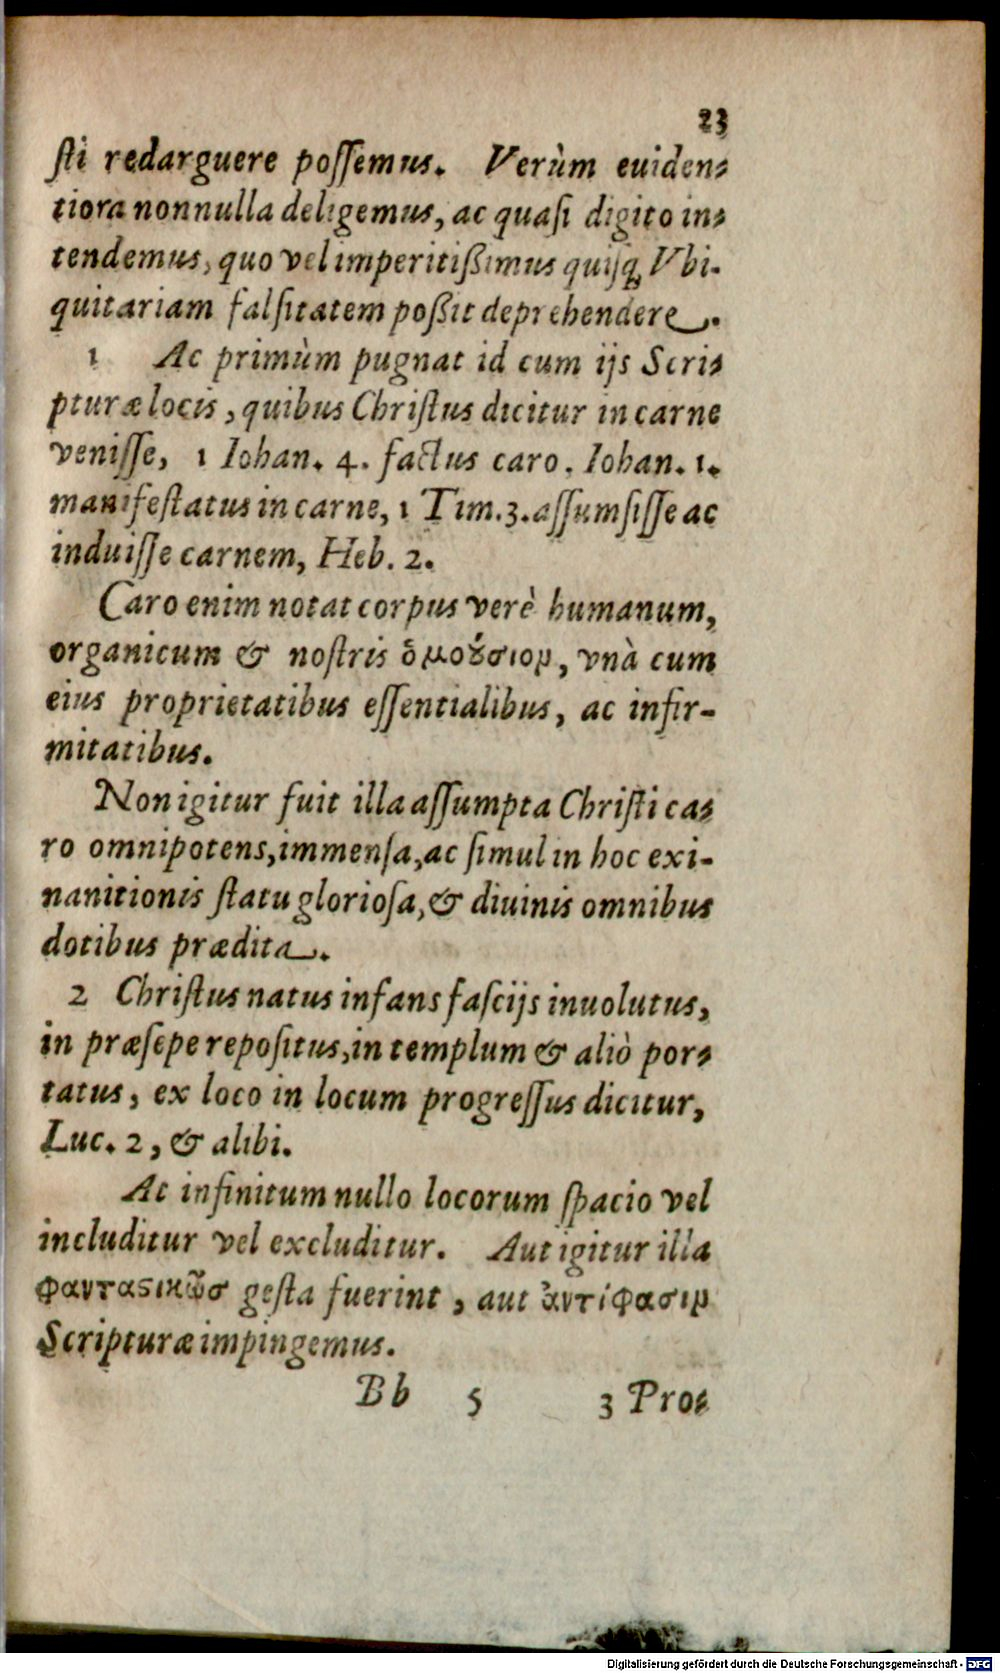 23
sti redarguere possemus. Verùm euiden-
tiora nonnulla deligemus, ac quasi digito in-
tendemus, quo vel imperitißimus quisq; Vbi-
quitariam falsitatem poßit deprehendere.
1 Ac primùm pugnat id cum ijs Scri-
pturæ locis, quibus Christus dicitur in carne
venisse, 1 Iohan. 4. factus caro. Iohan. 1.
manifestatus in carne, 1 Tim. 3. assumsisse ac
induisse carnem, Heb. 2.
Caro enim notat corpus verè humanum,
organicum & nostris ὁμούσιον, vnà cum
eius proprietatibus essentialibus, ac infir-
mitatibus.
Non igitur fuit illa assumpta Christi ca-
ro omnipotens, immensa, ac simul in hoc exi-
nanitionis statu gloriosa, & diuinis omnibus
dotibus prædita.
2 Christus natus infans fascijs inuolutus,
in præsepe repositus, in templum & aliò por-
tatus, ex loco in locum progressus dicitur,
Luc. 2, & alibi.
At infinitum nullo locorum spacio vel
includitur vel excluditur. Aut igitur illa
φανταϛικῶσ gesta fuerint, aut ἀντίφασιν
Scripturæ impingemus.
Bb 5 3 Pro-
Digitalisierung gefördert durch die Deutsche Forschungsgemeinschaft - DFG